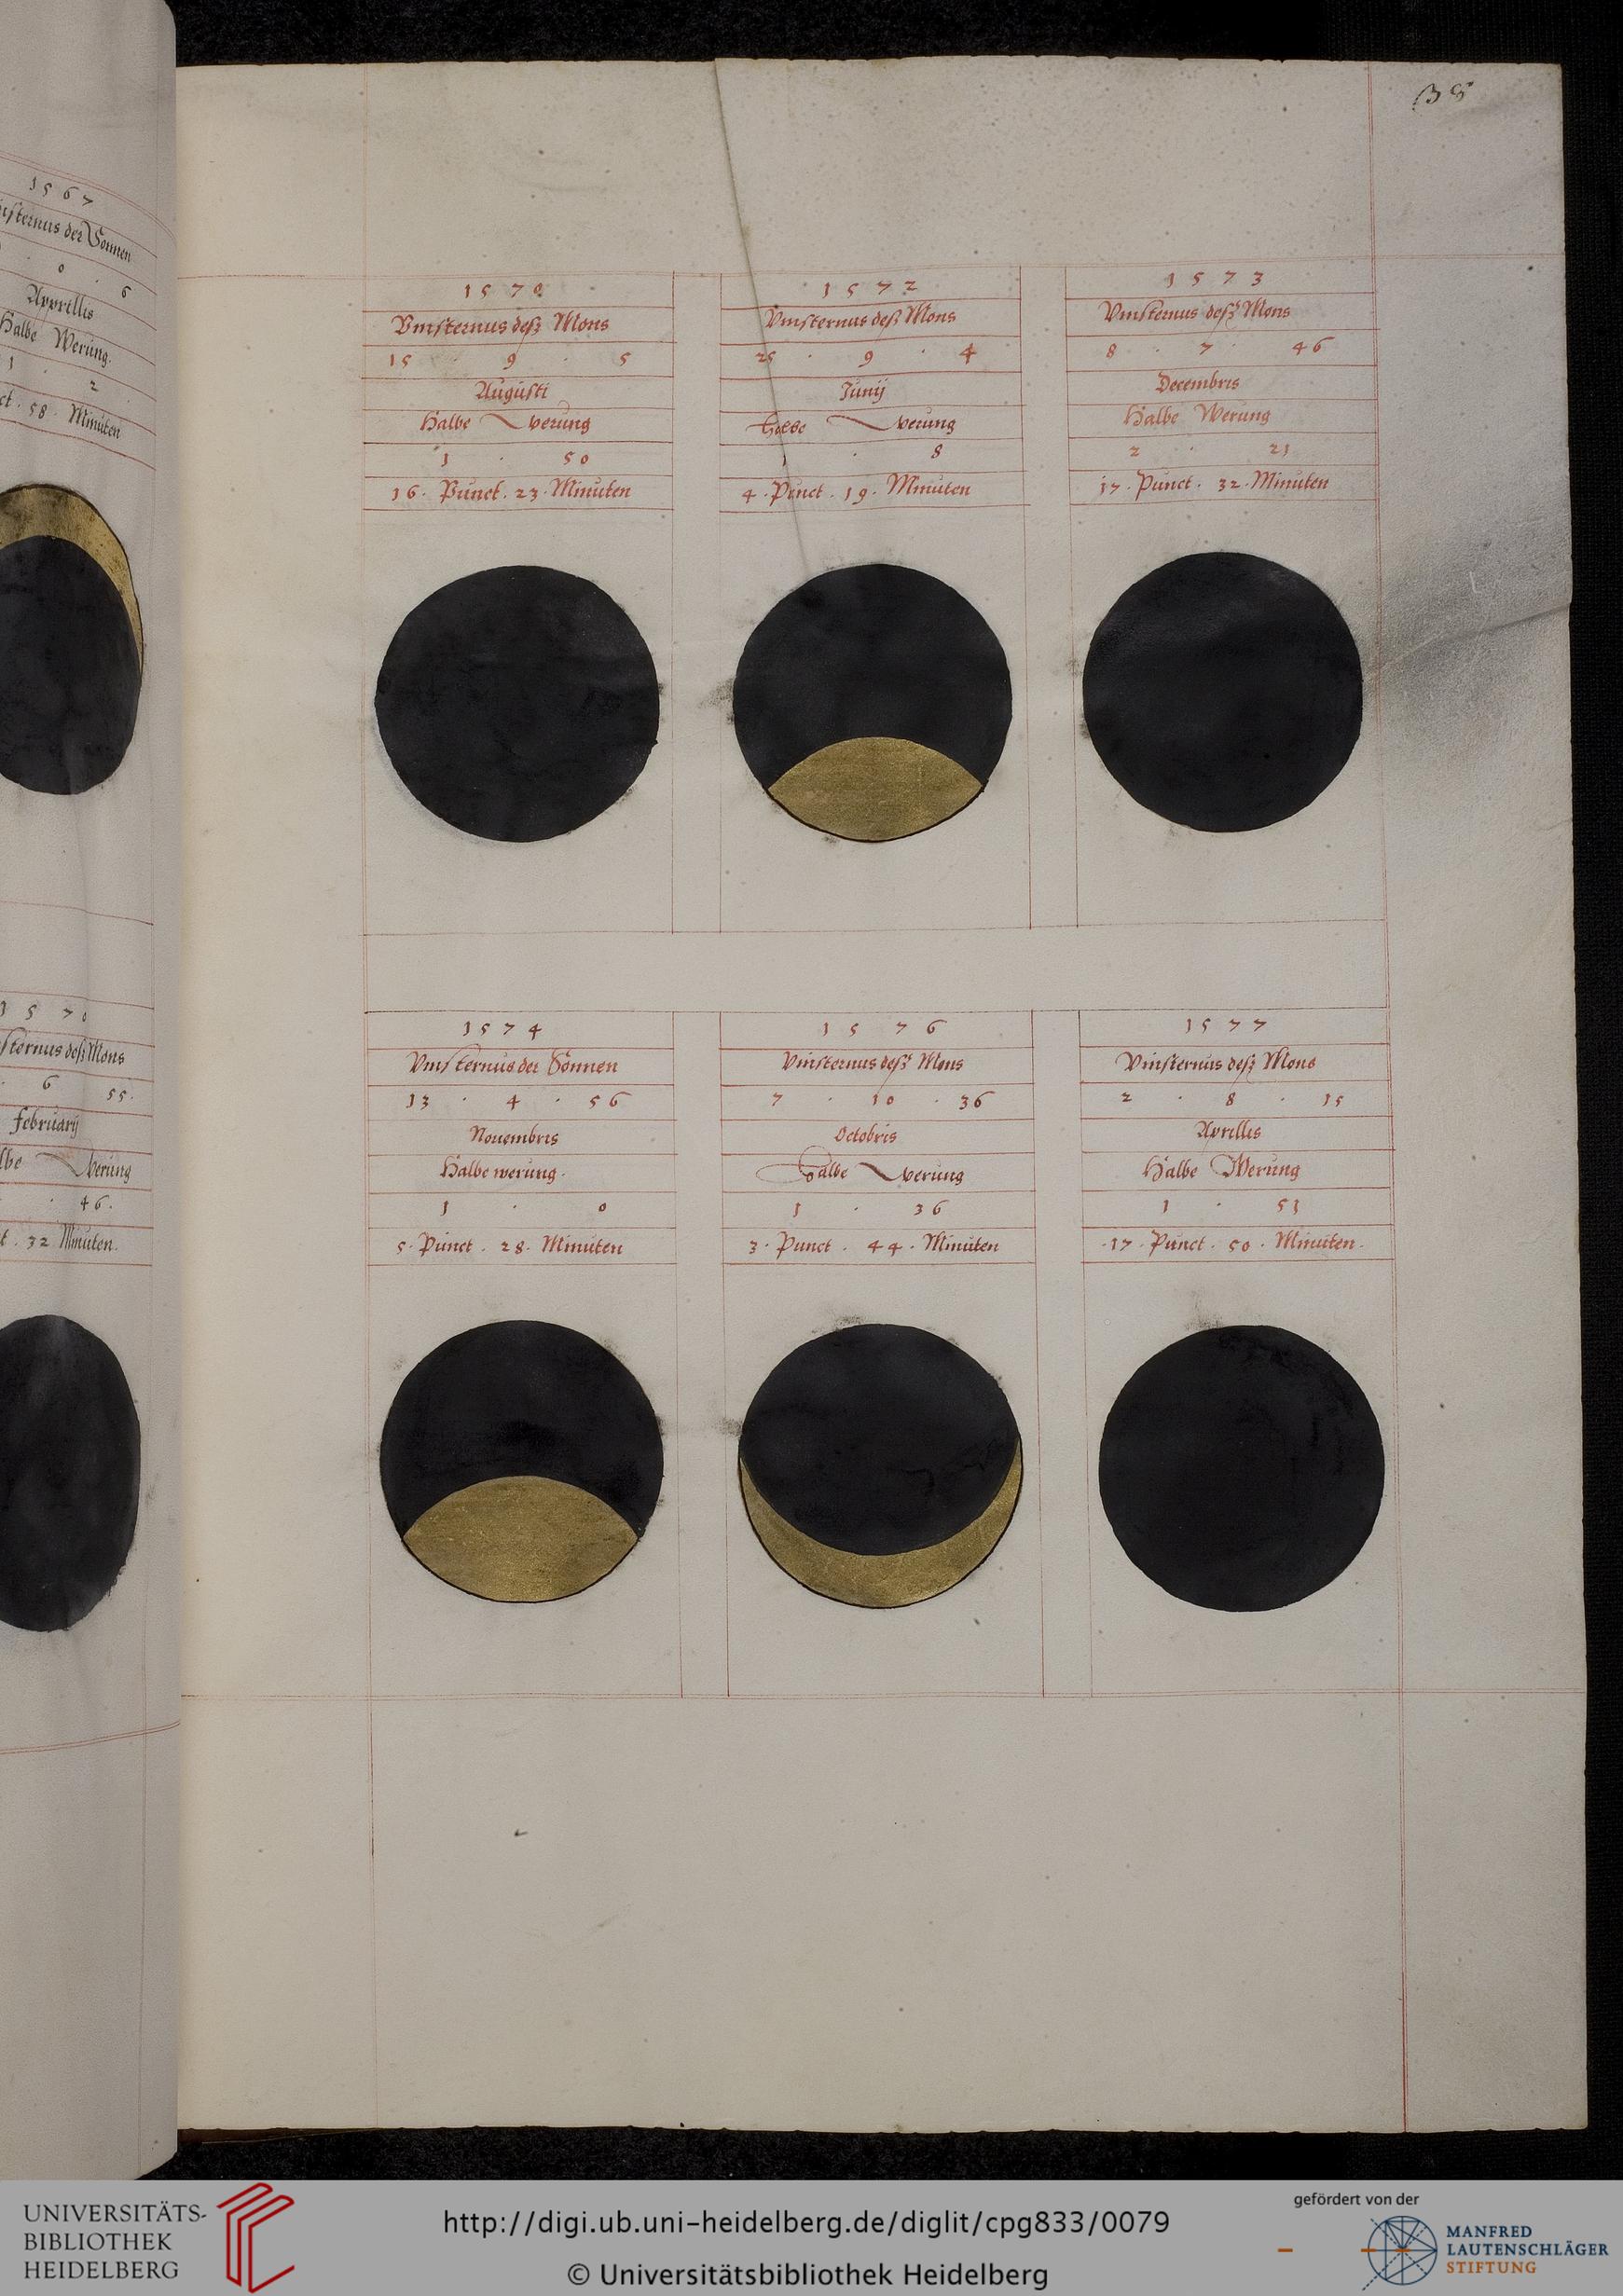 38
1567
der Sonnen
0 · 6
Apprillis
Halbe Werung.
1 · 2
58 · Minuten
1570
deß Mons
6 55.
februarij
Werung
46.
32 Minuten.
1570
Vinsternus deß Mons
15 · 9 · 5
Augusti
Halbe Werung
1 · 50
16 · Punct · 23 · Minuten
1572
Vinsternus deß Mons
25 · 9 · 4
Junij
Halbe Werung
1 · 8
4 · Punct · 19 · Minuten
1573
Vinsternus deß Mons
8 · 7 · 46
Decembris
Halbe Werung
2 · 21
17 · Punct · 32 · Minuten
1574
Vinsternus der Sonnen
13 · 4 · 56
Nouembris
Halbe werung ·
1 · 0
5 · Punct · 28 · Minuten
1576
Vinsternus deß Mons
7 · 10 · 36
Octobris
Halbe Werung
1 · 36
3 · Punct · 44 · Minuten
1577
Vinsternus deß Mons
2 · 8 · 15
Aprillis
Halbe Werung
1 · 51
· 17 · Punct · 50 · Minuten ·
UNIVERSITÄTS-
BIBLIOTHEK
HEIDELBERG
http://digi.ub.uni-heidelberg.de/diglit/cpg833/0079
© Universitätsbibliothek Heidelberg
gefördert von der
MANFRED
LAUTENSCHLÄGER
STIFTUNG